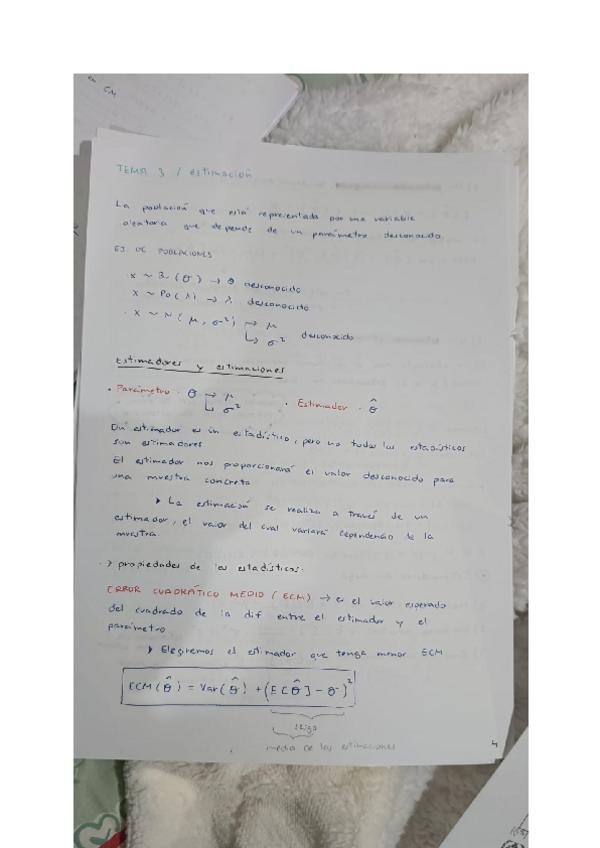 en CM
TEMA 3 / estimación
La población que está representada por una variable
aleatoria que depende de un parámetro desconocido.
EJ DE POBLACIONES
· x ~ B. (θ) → θ desconocido
x ~ Po(λ) → λ desconocido
· x ~ N(μ, σ²) → μ
↳ σ² desconocido
Estimadores y estimaciones
· Parámetro · θ → μ
↳ σ²
· Estimador · θ̂
Un estimador es un estadístico, pero no todos los estadísticos
son estimadores
El estimador nos proporcionará el valor desconocido para
una muestra concreta
▸ La estimación se realiza a través de un
estimador, el valor del cual variará dependendo de la
muestra.
-> propiedades de los estadísticos.
ERROR CUADRÁTICO MEDIO (ECM) → es el valor esperado
del cuadrado de la dif entre el estimador y el
parámetro
▸ Elegiremos el estimador que tenga menor ECM
ECM(θ̂) = Var(θ̂) + (E[θ̂] - θ)²
sesgo
media de las estimaciones